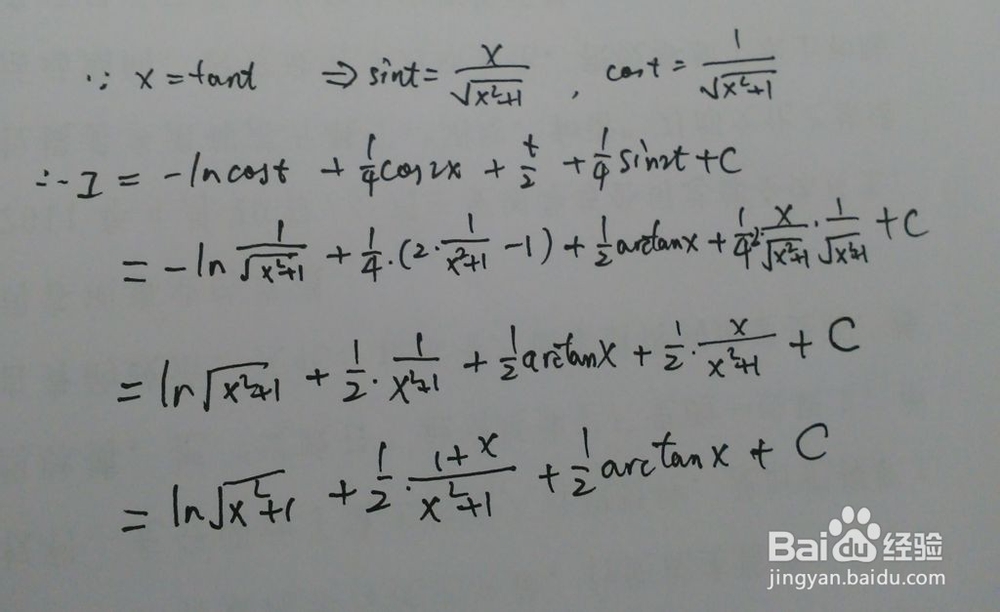 ∵ x = tant ⇒ sint = x/√(x²+1) , cost = 1/√(x²+1)
∴ I = -ln cost + 1/4 cos2x + t/2 + 1/4 sin2t + C
= -ln 1/√(x²+1) + 1/4·(2·1/(x²+1) -1) + 1/2 arctanx + 1/4·2·x/√(x²+1)·1/√(x²+1) + C
= ln√(x²+1) + 1/2·1/(x²+1) + 1/2 arctanx + 1/2·x/(x²+1) + C
= ln√(x²+1) + 1/2·(1+x)/(x²+1) + 1/2 arctanx + C
Baidu经验
jingyan.baidu.com